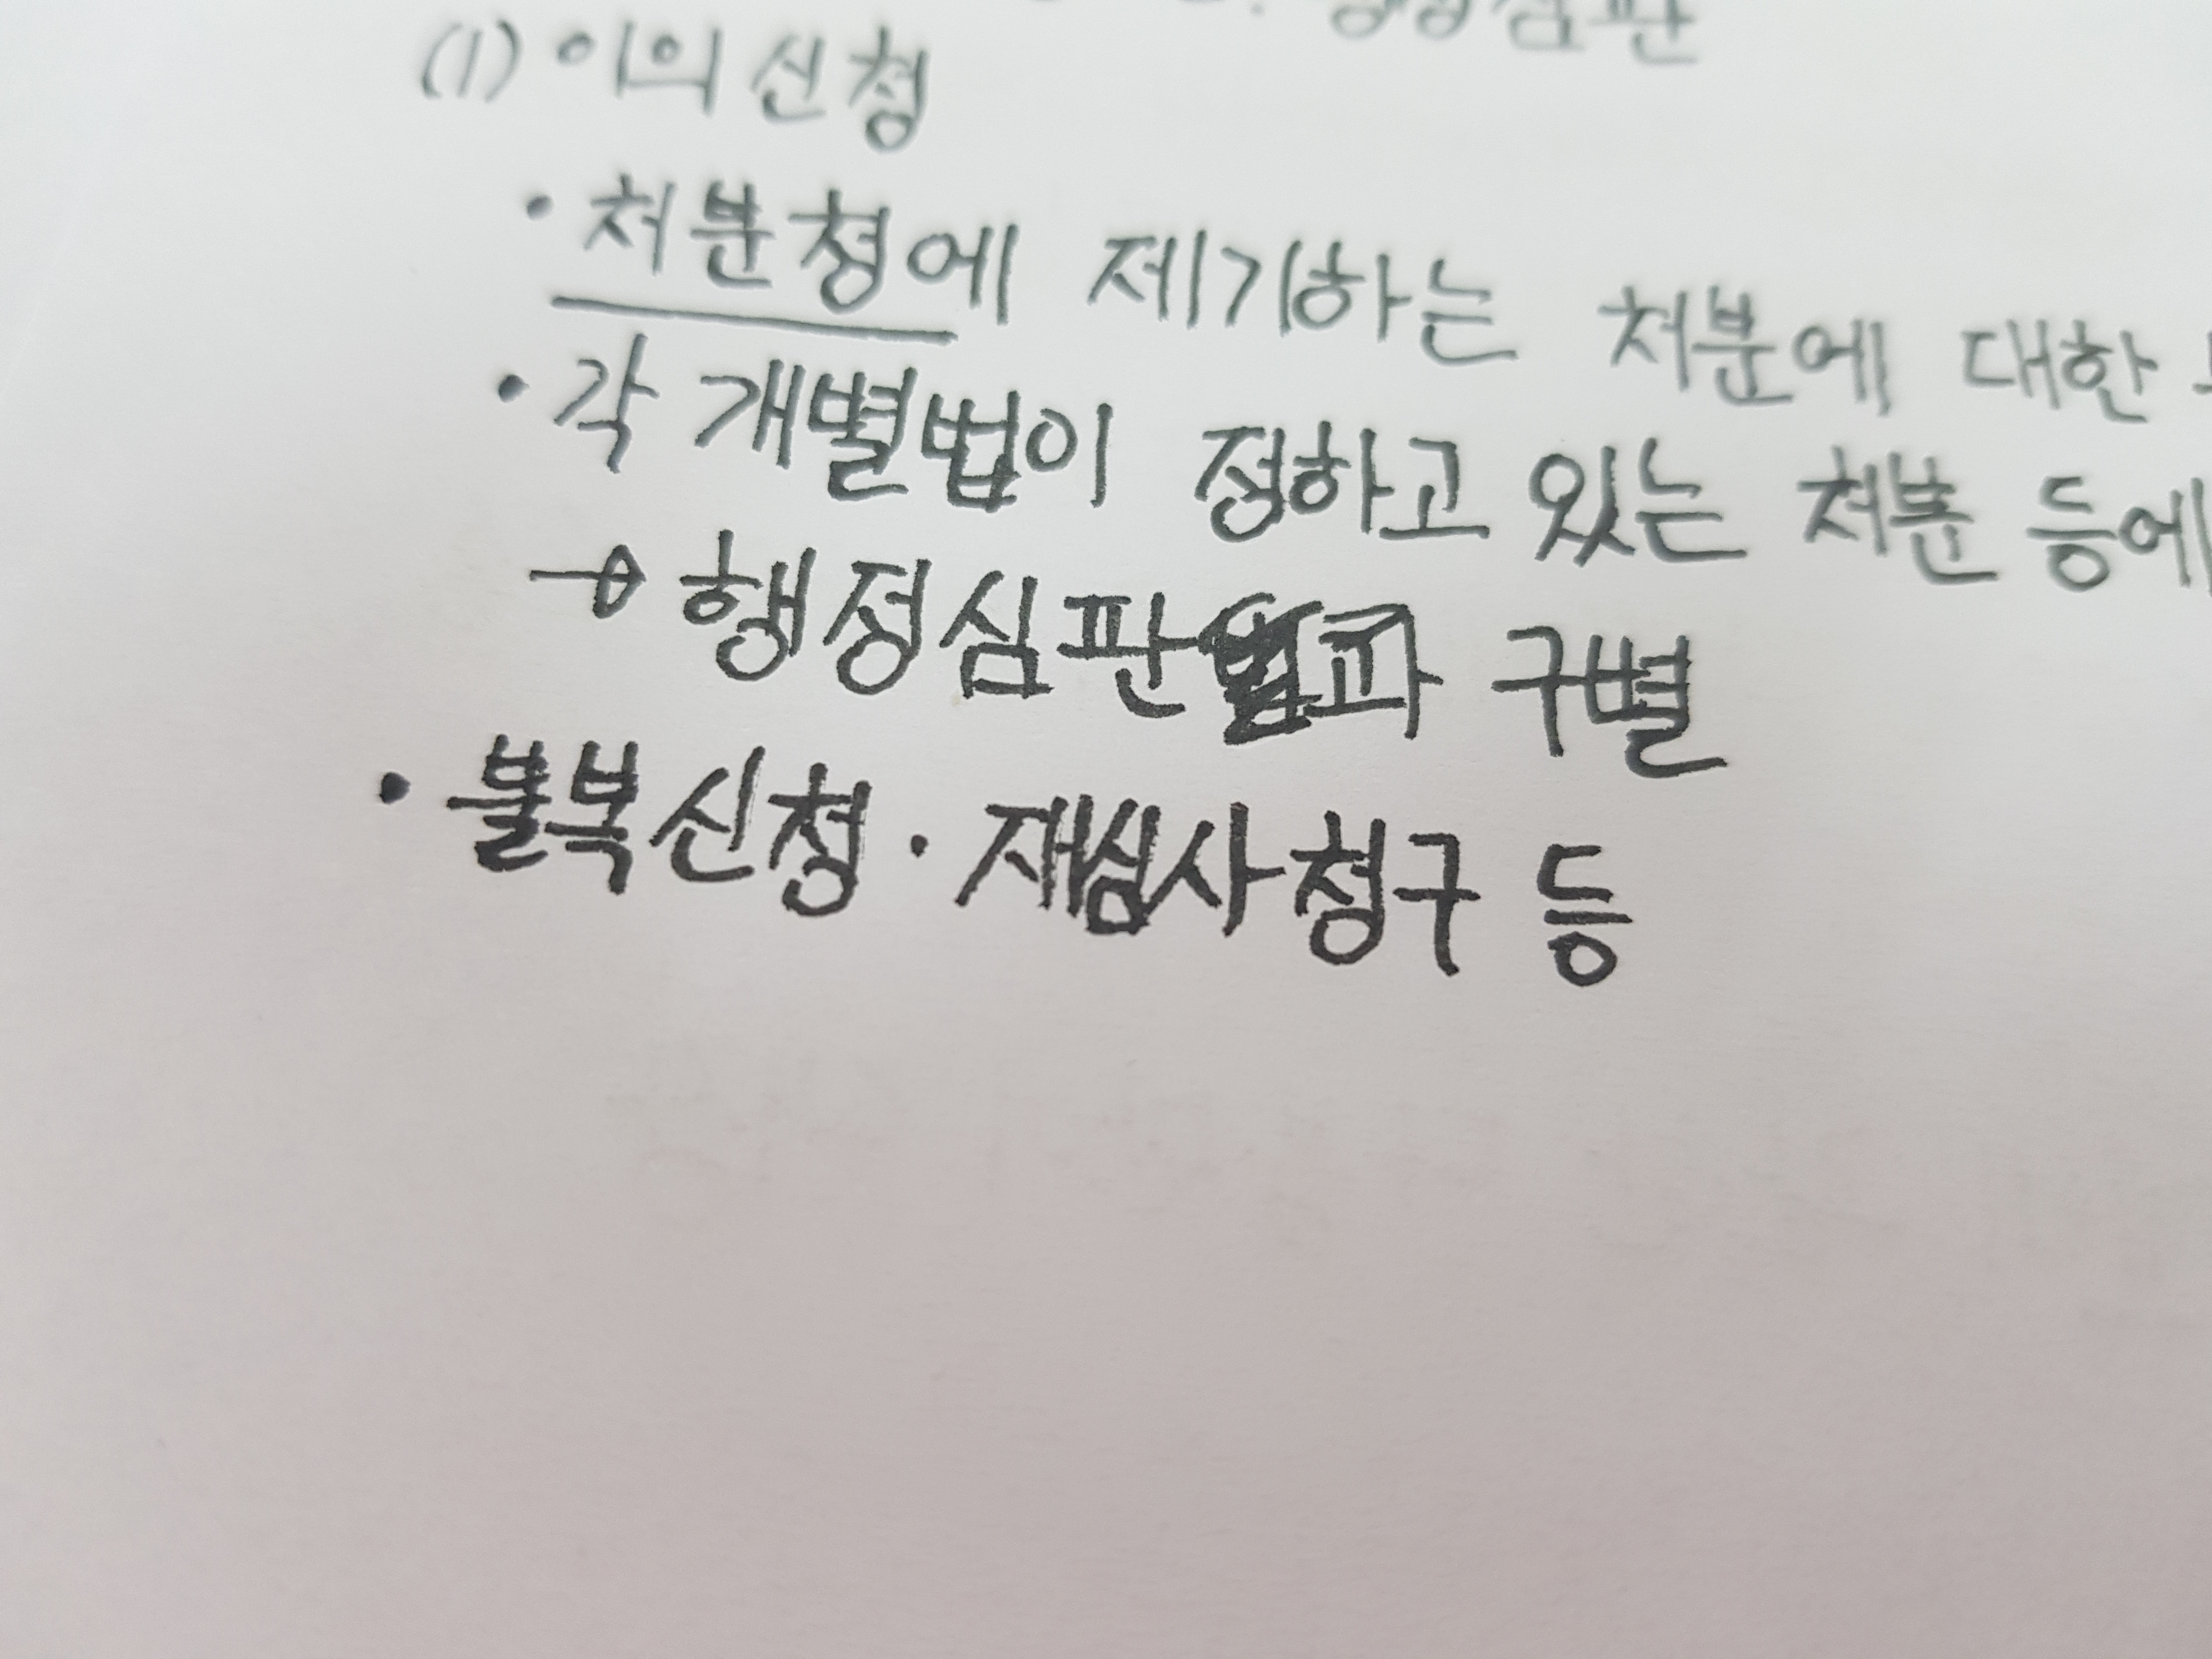 행정심판
(1) 이의신청
· 처분청에 제기하는 처분에 대한
· 각 개별법이 정하고 있는 처분 등에
→ 행정심판과 구별
· 불복신청 · 재심사청구 등